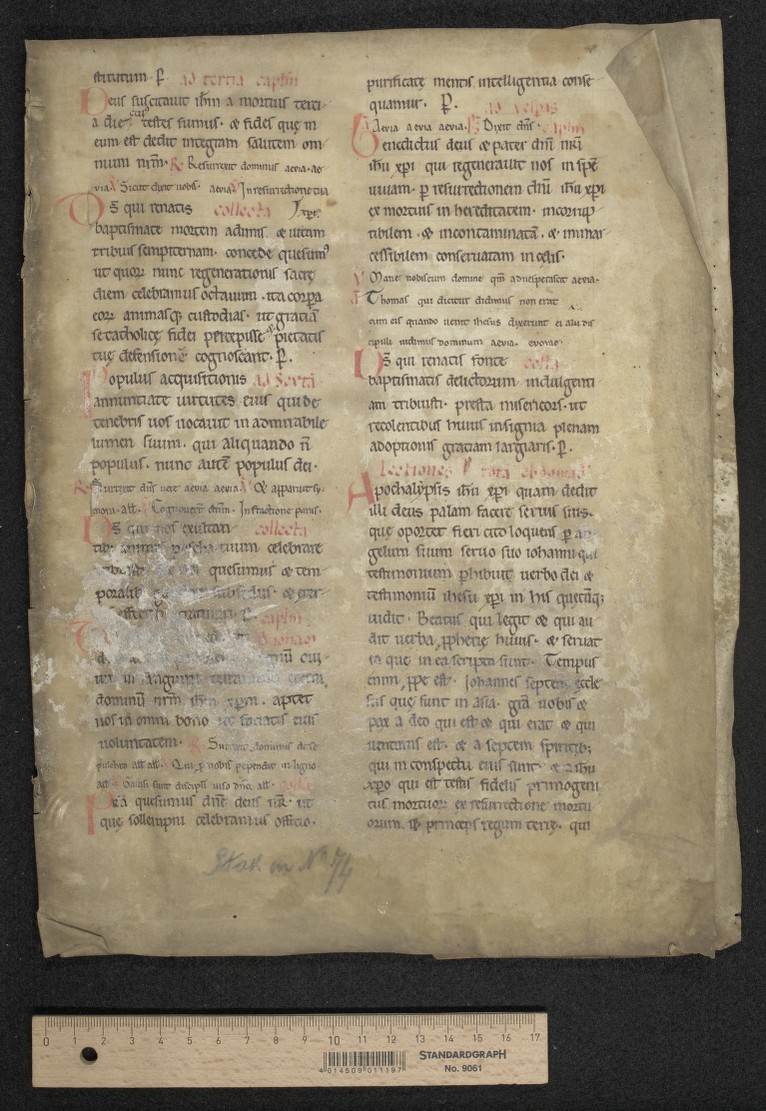 stitutum. P. ad tertia caplm
Deus suscitavit ihm a mortuis terti-
a die cuius testes sumus. & fides quę in
eum est dedit integram salutem om-
nium nrm. R. Resurrexit dominus aevia. ae-
via V Sicut dixit vobis. aevia V In resurrectione tua xpe.
DS qui renatis collecta
baptismate mortem adimis. & vitam
tribuis sempiternam. concede quesumus
ut quorum nunc regenerationis sacrę
diem celebramus octavum. ita corpora
eorum animasq; custodias. ut gratiam
se catholicę fidei percepisse pietatis
tuę defensione cognoscant. P.
Populus acquisitionis ad Sexta
annuntiate virtutes eius qui de
tenebris vos vocavit in admirabile
lumen suum. qui aliquando n̄
populus. nunc autē populus dei.
R. Surrexit dns vere aevia aevia V Et apparuit sy-
moni. all. V Cognoverunt dnm. In fractione panis.
DS qui nos exultan collecta
tib animis paschale tuum celebrare
quesumus & tem-
poralib
caplm
ad Nonam
in sanguine testamenti eterni
dominū nrm ihm xpm. aptet
nos in omni bono ut faciatis eius
voluntatem. R. Surrexit dominus de se-
pulchro all all. V Qui p nobis pependit in ligno
all. V Gavisi sunt discipli viso dno. all. colla
Pręsta quesumus dne deus nr. ut
que sollempni celebramus officio.
purificatę mentis intelligentia conse-
quamur. P. ad vespas
Aevia aevia aevia. Ps Dixit dns. caplm
Benedictus deus & pater dni nri
ihu xpi qui regeneravit nos in spē
vivam. p resurrectionem dni ihu xpi
ex mortuis in hereditatem incorrup-
tibilem. & incontaminatā. & immar-
cessibilem conservatam in celis.
V Mane nobiscum domine qm advesperascit aevia.
a Thomas qui dicitur didimus non erat
cum eis quando venit ihesus dixerunt ei alii dis-
cipuli vidimus dominum aevia. evovae.
DS qui renatis fonte colla
baptismatis delictorum indulgenti-
am tribuisti. presta misericors. ut
recolentibus huius insignia plenam
adoptionis gratiam largiaris. P.
Lectiones p tota ebdomada
Apochalypsis ihu xpi quam dedit
illi deus palam facere servis suis.
quę oportet fieri cito loquens p an-
gelum suum servo suo iohanni qui
testimonium phibuit verbo dei &
testimoniū ihesu xpi in his quecūq;
vidit. Beatus qui legit & qui au-
dit verba pphetię huius. & servat
ea que in ea scripta sunt. Tempus
enim ppe est. Johannes septem eccle-
siis quę sunt in asia. gra vobis &
pax a deo qui est & qui erat & qui
venturus est. & a septem spiritib;
qui in conspectu eius sunt & a ihu
xpo qui est testis fidelis primogeni-
tus mortuorum ex resurrectione mortu-
orum. & princeps regum terrę. qui
N° 74
0 1 2 3 4 5 6 7 8 9 10 11 12 13 14 15 16 17
STANDARDGRAPH
No. 9061
4 014509 011197